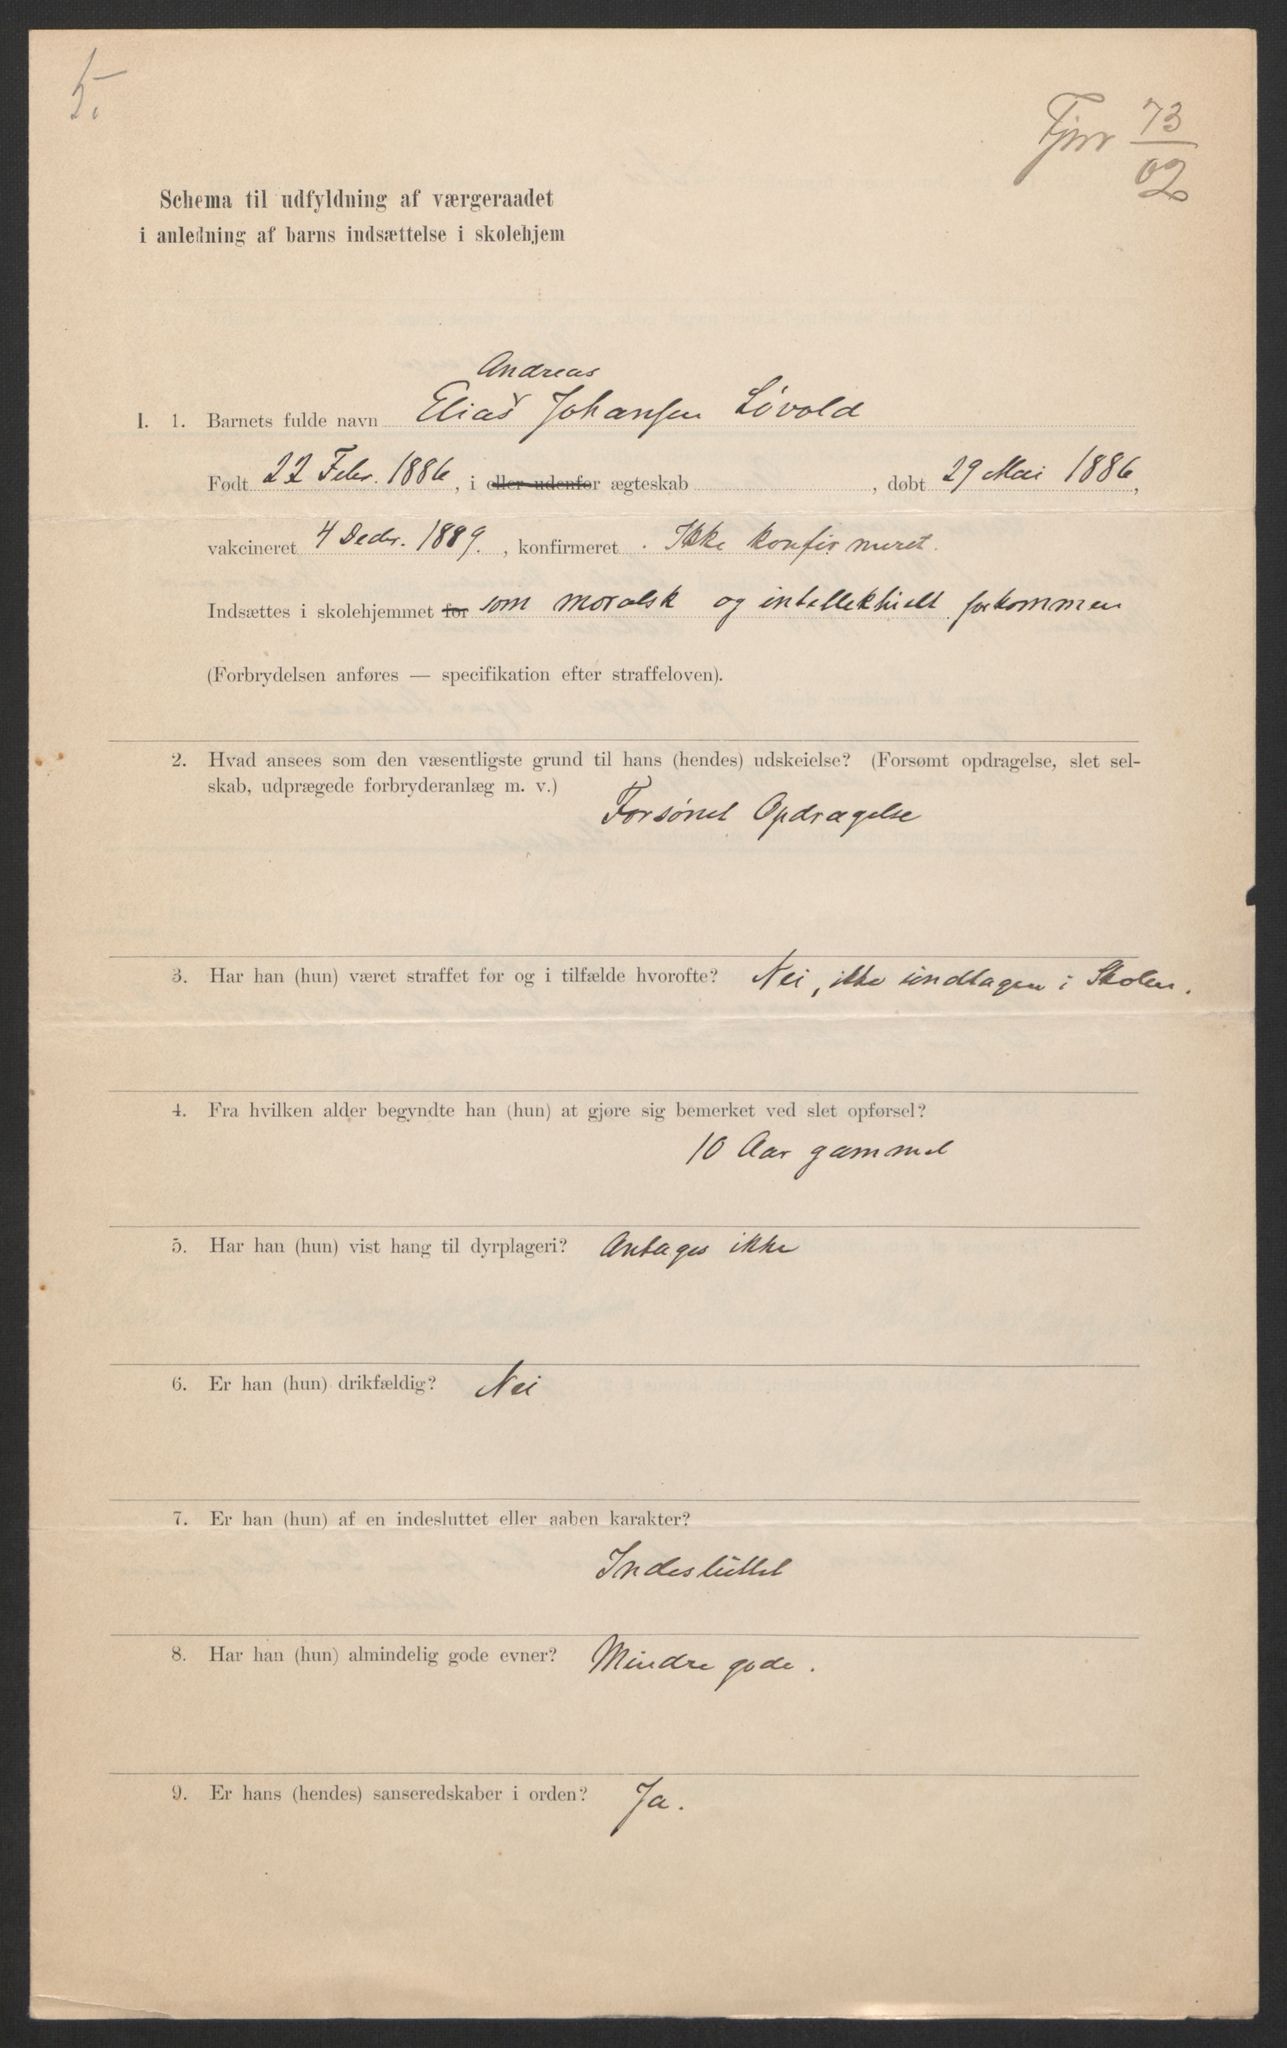 5.
Fjnr 73
02
Schema til udfyldning af værgeraadet
i anledning af barns indsættelse i skolehjem
Andreas
I. 1. Barnets fulde navn Elias Johansen Løvold
Født 22 Febr. 1886, i eller udenfor ægteskab , døbt 29 Mai 1886,
vakcineret 4 Decbr. 1889. , konfirmeret . Ikke konfirmeret.
Indsættes i skolehjemmet for som moralsk og intellektuelt forkommen
(Forbrydelsen anføres — specifikation efter straffeloven).
2. Hvad ansees som den væsentligste grund til hans (hendes) udskeielse? (Forsømt opdragelse, slet sel-
skab, udprægede forbryderanlæg m. v.)
Forsømt Opdragelse
3. Har han (hun) været straffet før og i tilfælde hvorofte? Nei, ikke undtagen i Skolen.
4. Fra hvilken alder begyndte han (hun) at gjøre sig bemerket ved slet opførsel?
10 Aar gammel
5. Har han (hun) vist hang til dyrplageri? Antages ikke
6. Er han (hun) drikfældig? Nei
7. Er han (hun) af en indesluttet eller aaben karakter?
Indesluttet
8. Har han (hun) almindelig gode evner? Mindre gode.
9. Er hans (hendes) sanseredskaber i orden? Ja.